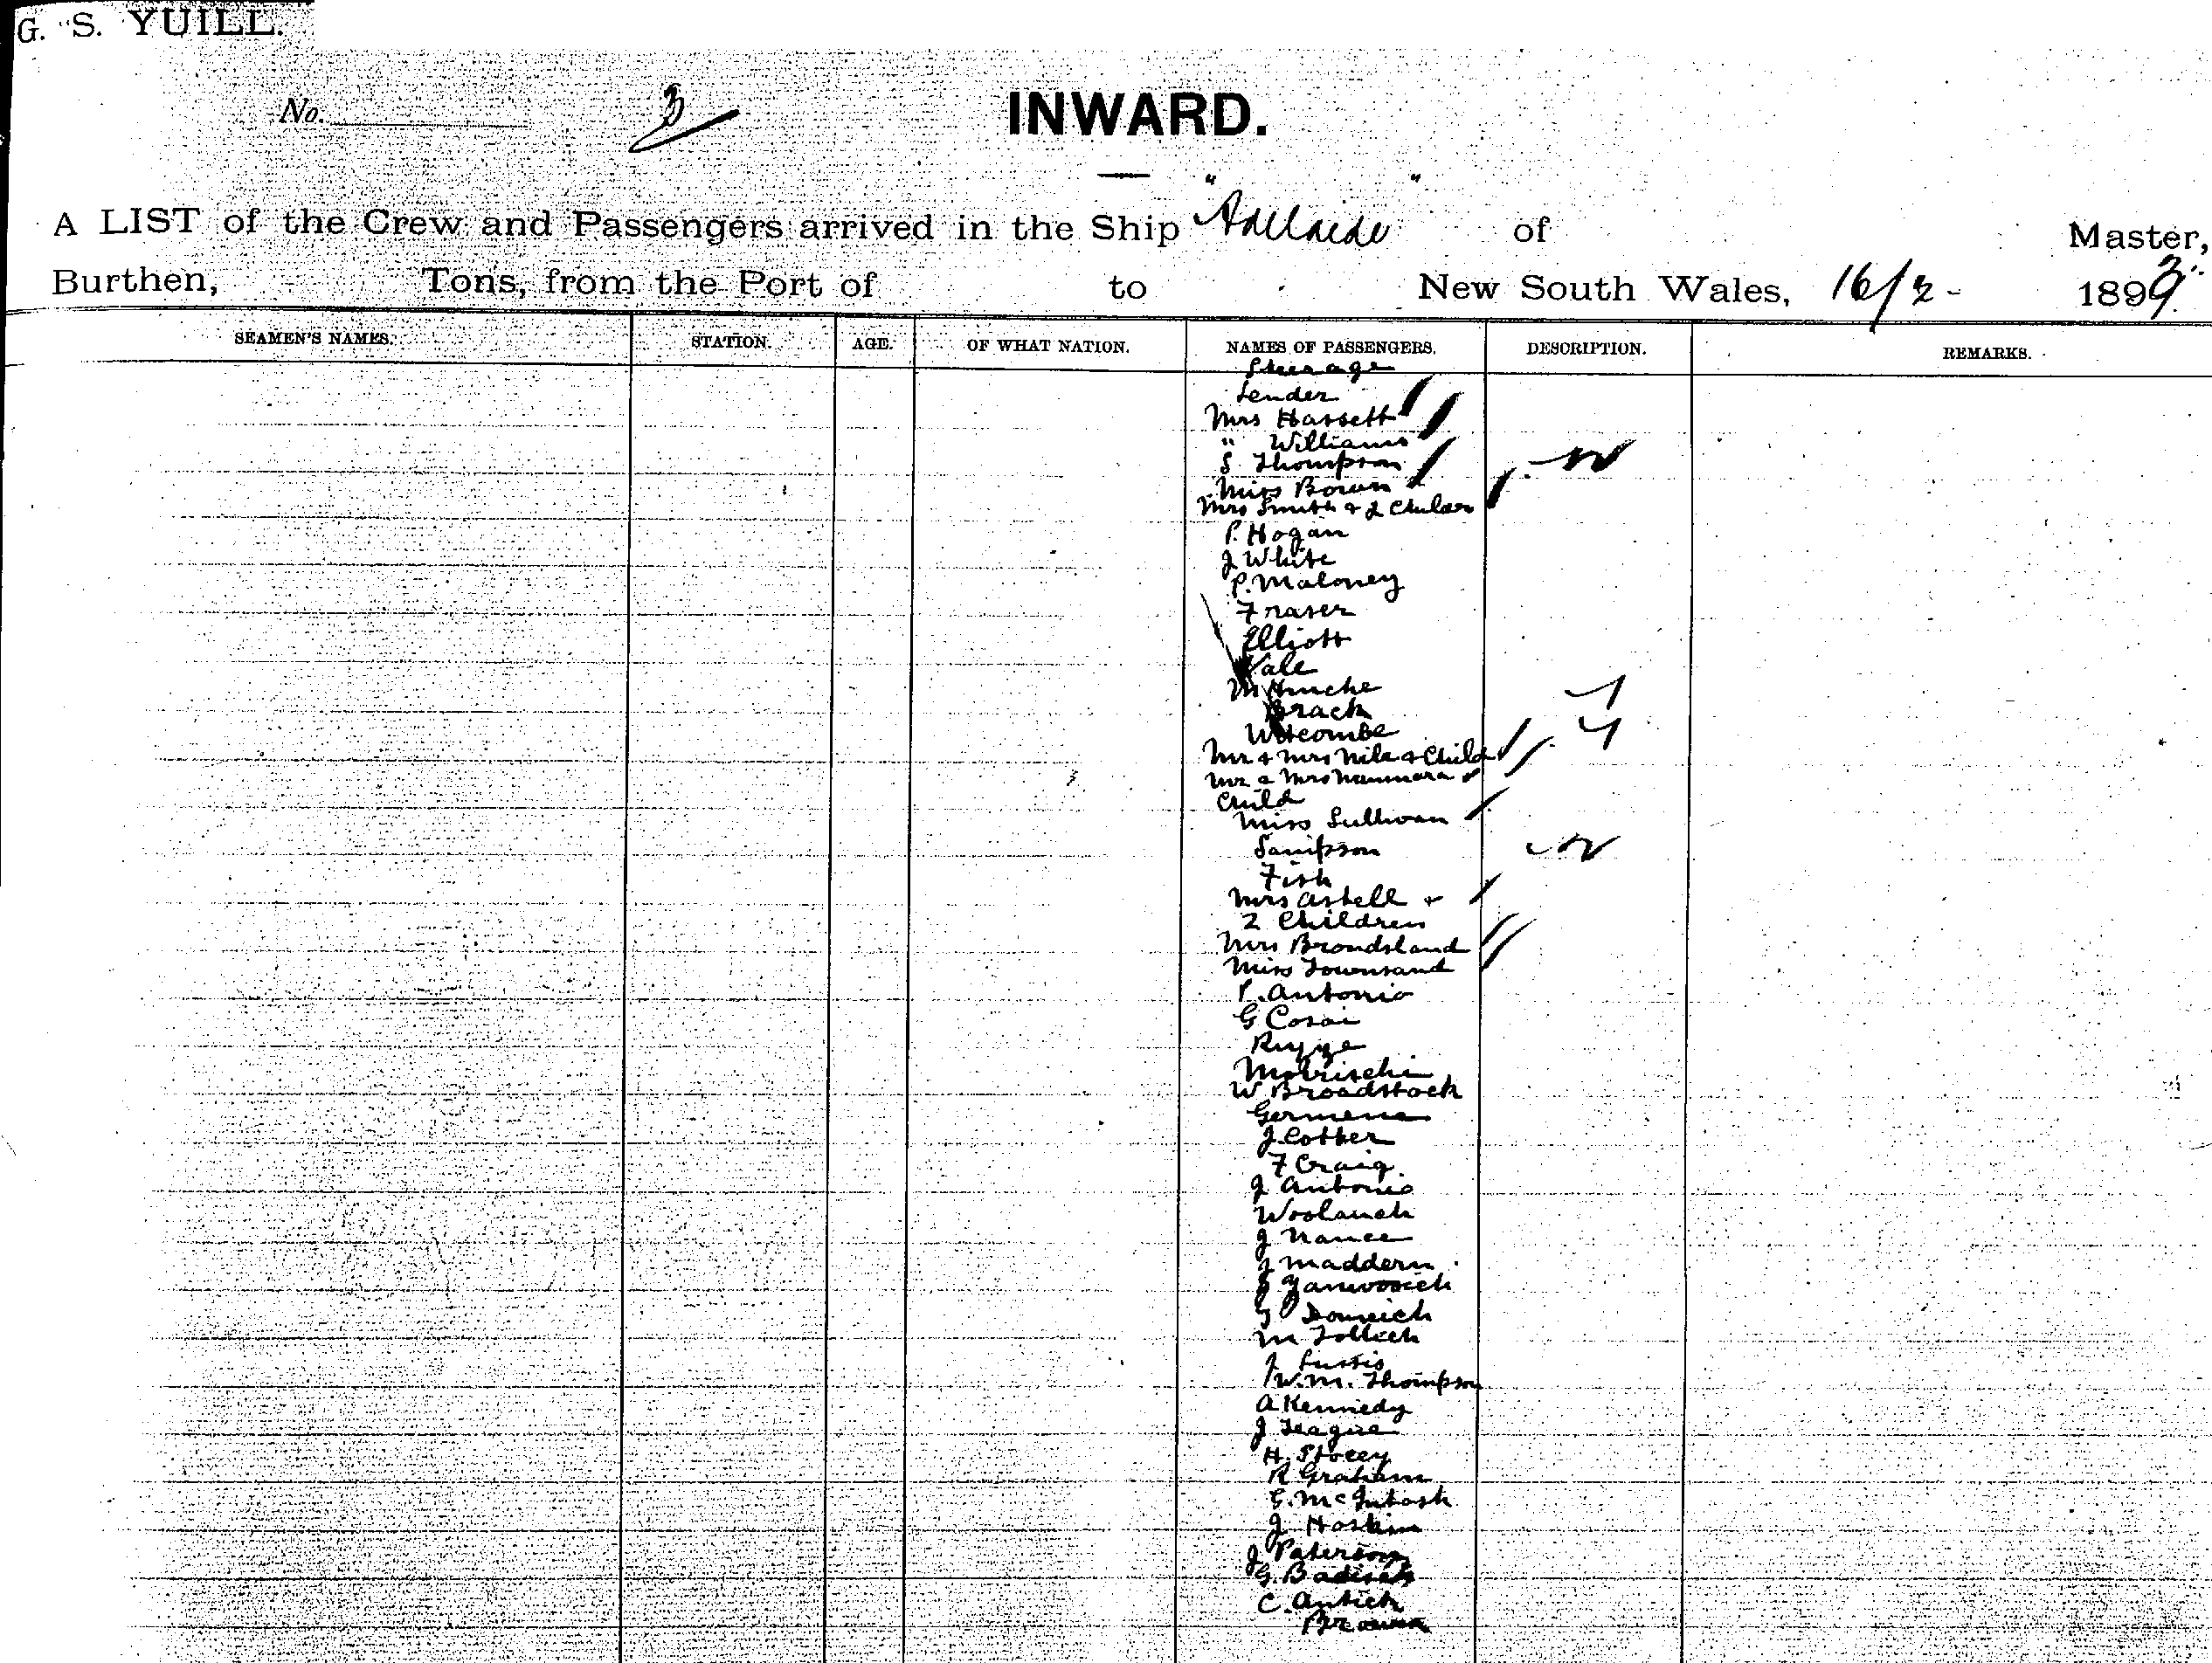 G. S. YUILL.
No. 3
INWARD.
A LIST of the Crew and Passengers arrived in the Ship "Adelaide" of Master,
Burthen, Tons, from the Port of to New South Wales, 16/2 - 1899
SEAMEN'S NAMES. STATION. AGE. OF WHAT NATION. NAMES OF PASSENGERS. DESCRIPTION. REMARKS.
Steerage
Lender
Mrs Hassett
" Williams
S Thompson
Miss Bowen
Mrs Smith & 2 Children
P. Hogan
J White
P. Maloney
Fraser
Elliott
Vale
Brack
Witcombe
Mr & Mrs Nile & Child
Mr & Mrs &
Child
Miss Sullivan
Sampson
Fish
Mrs Astell &
2 Children
Mrs Brondsland
Miss Townsand
P. Antonio
G Cosai
W Broadstock
J. Cotter
F Craig
J Antonio
J Nance
J Maddern
M Tollich
W. M. Thompson
A Kennedy
J Teague
H. Stocey
R Graham
G. McIntosh
J Hoskin
J Paterson
C. Antich
Brown